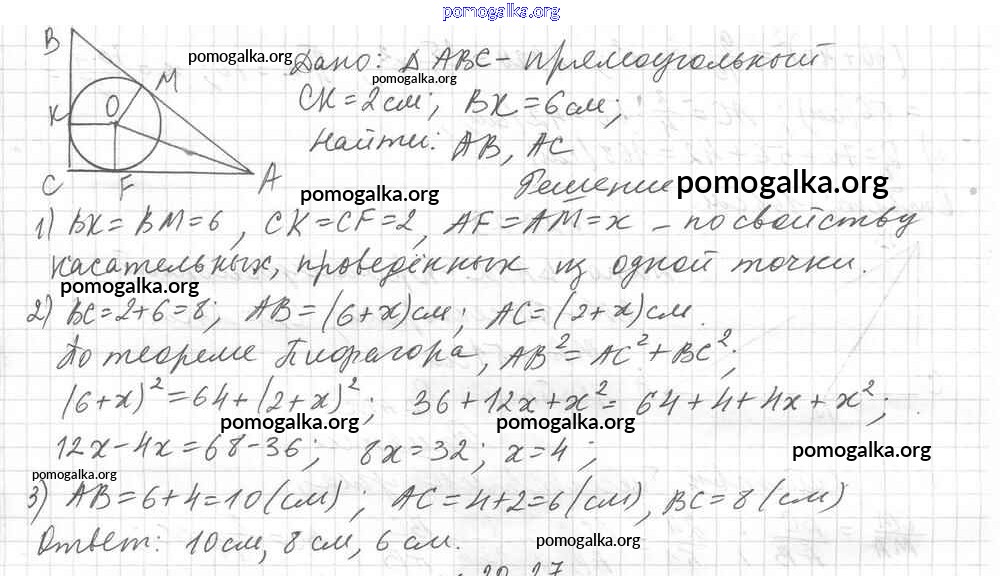 pomogalka.org
B
pomogalka.org
Дано: Δ ABC - прямоугольный
M
pomogalka.org
CK = 2 см; BK = 6 см;
K
O
Найти: AB, AC
C
F
A
pomogalka.org
Решение
pomogalka.org
1) BK = BM = 6, CK = CF = 2, AF = AM = x - по свойству
касательных, проведённых из одной точки.
pomogalka.org
2) BC = 2+6 = 8; AB = (6+x) см; AC = (2+x) см.
По теореме Пифагора, AB² = AC² + BC²;
(6+x)² = 64 + (2+x)²; 36 + 12x + x² = 64 + 4 + 4x + x²;
pomogalka.org pomogalka.org
12x - 4x = 68 - 36; 8x = 32; x = 4;
pomogalka.org
pomogalka.org
3) AB = 6+4 = 10 (см); AC = 4+2 = 6 (см), BC = 8 (см)
Ответ: 10 см, 8 см, 6 см.
pomogalka.org